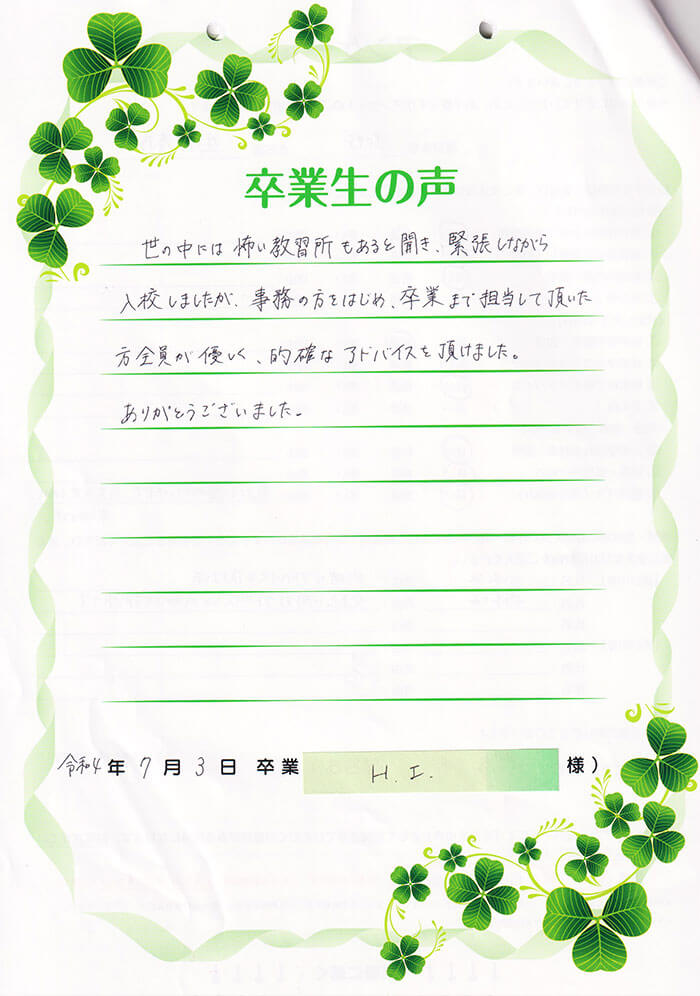 卒業生の声
世の中には怖い教習所もあると聞き、緊張しながら
入校しましたが、事務の方をはじめ、卒業まで担当して頂いた
方全員が優しく、的確なアドバイスを頂けました。
ありがとうございました。
令和4年7月3日 卒業 H.I. 様)